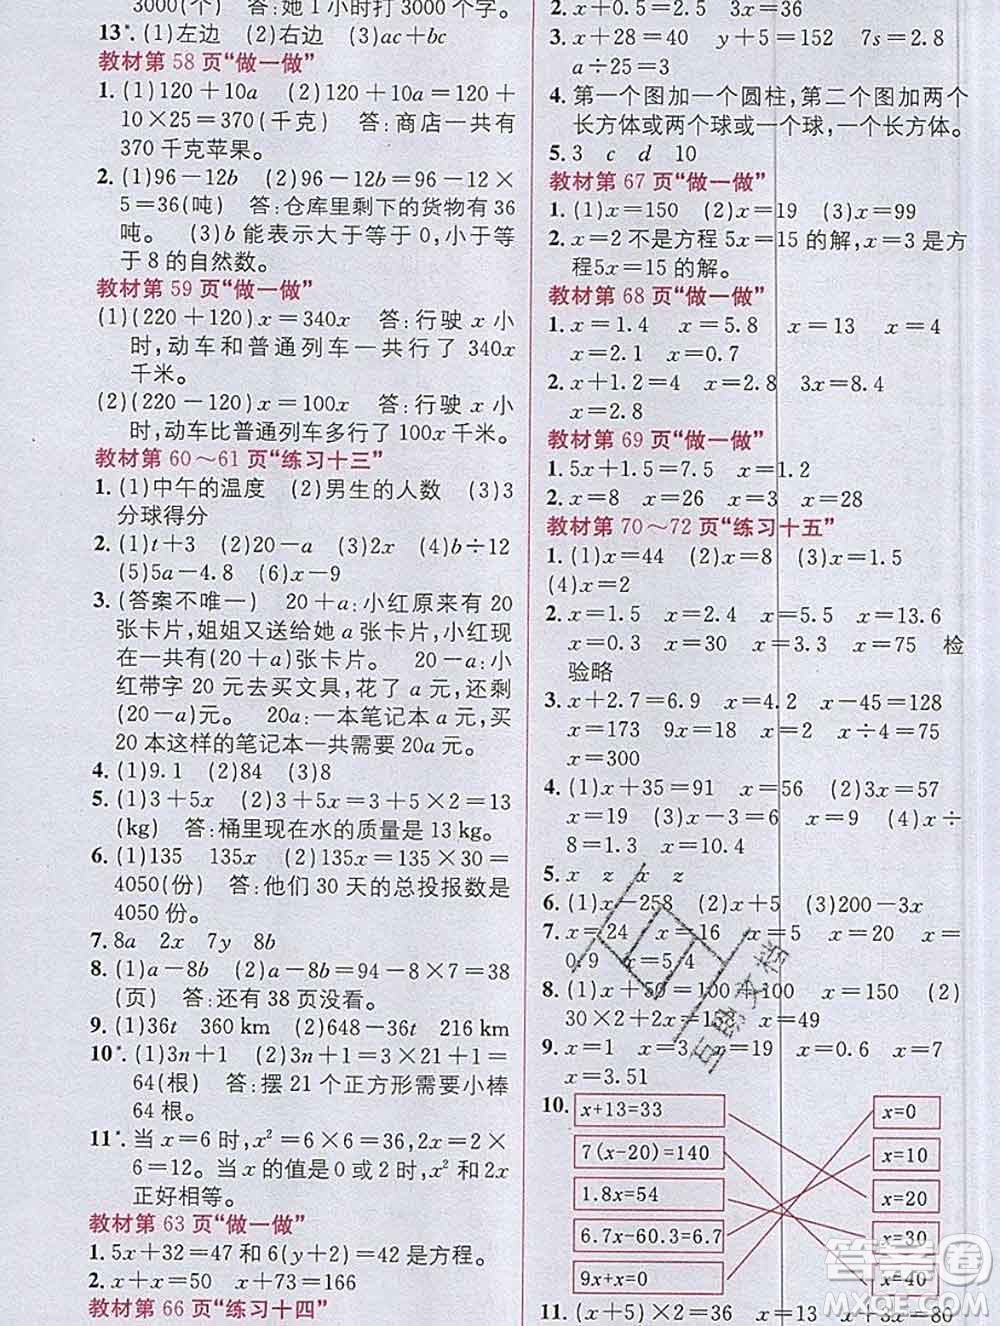 3000(个)　答:她 1 小时打 3000 个字。
13*. (1)左边　(2)右边　(3)ac+bc
教材第 58 页“做一做”
1. (1)120+10a　(2)120+10a=120+
10×25=370(千克)　答:商店一共有
370 千克苹果。
2. (1)96-12b　(2)96-12b=96-12×
5=36(吨)　答:仓库里剩下的货物有 36
吨。　(3)b 能表示大于等于 0,小于等
于 8 的自然数。
教材第 59 页“做一做”
(1)(220+120)x=340x　答:行驶 x 小
时,动车和普通列车一共行了 340x
千米。
(2)(220-120)x=100x　答:行驶 x 小
时,动车比普通列车多行了 100x 千米。
教材第 60～61 页“练习十三”
1. (1)中午的温度　(2)男生的人数　(3)3
分球得分
2. (1)t+3　(2)20-a　(3)ax　(4)b÷12
(5)5a-4.8　(6)x-9
3. (答案不唯一)　20+a:小红原来有 20
张卡片,姐姐又送给她 a 张卡片,小红现
在一共有(20+a)张卡片。　20-a:小
红带字 20 元去买文具,花了 a 元,还剩
(20-a)元。　20a:一本笔记本 a 元,买
20 本这样的笔记本一共需要 20a 元。
4. (1)9.1　(2)84　(3)8
5. (1)3+5x　(2)3+5x=3+5×2=13
(kg)　答:桶里现在水的质量是 13 kg。
6. (1)135　135x　(2)135x=135×30=
4050(份)　答:他们 30 天的总投报数是
4050 份。
7. 8a　2x　7y　8b
8. (1)a-8b　(2)a-8b=78-8×5=38
(页)　答:还有 38 页没看。
9. (1)36t　360 km　(2)648-36t　216 km
10*. (1)3n+1　(2)3n+1=3×21+1=
64(根)　答:摆 21 个正方形需要小棒
64 根。
11*. 当 x=6 时,x²=6×6=36,2x=2×
6=12。当 x 的值是 0 或 2时,x² 和 2x
正好相等。
教材第 63 页“做一做”
1. 5x+32=47 和 6(y+2)=42 是方程。
2. x+x=50　x+73=166
教材第 66 页“练习十四”
2. x+0.5=2.5　3x=36
3. x+28=40　y+5=152　7s=2.8
a÷25=3
4. 第一个图加一个圆柱,第二个图加两个
长方体或两个球或一个球,一个长方体。
5. 3　c　d　10
教材第 67 页“做一做”
1. (1)x=150　(2)x=19　(3)x=99
2. x=2 不是方程 5x=15 的解,x=3 是方
程5x=15 的解。
教材第 68 页“做一做”
1. x=1.4　x=5.8　x=13　x=4
x=2.1　x=0.7
2. x+1.2=4　x=2.8　3x=8.4
x=2.8
教材第 69 页“做一做”
1. 5x+1.5=7.5　x=1.2
2. x=5　x=24　x=3　x=28
教材第 70～72 页“练习十五”
1. (1)x=44　(2)x=8　(3)x=1.5
(4)x=2
2. x=1.5　x=2.4　x=5.5　x=13.6
x=0.3　x=30　x=3.3　x=75　检
验略
3. x+2.7=6.9　x=4.2　x-45=128
x=173　9x=18　x=2　x÷4=75
x=300
4. (1)x+35=91　x=56　(2)3x=57
x=19　(3)x-3=6　x=9　(4)x÷
8=1.3　x=10.4
5. x　z　x　z
6. (1)x-258　(2)x+5　(3)200-3x
7. x=24　x=16　x=5　x=20　x=
0.9　x=5.4
8. (1)x+50=100+100　x=150　(2)
30×2+2x=158　x=49
9. x=1　x=3　x=19　x=0.6　x=7
x=3.51
10. x+13=33　x=0
7(x-20)=140　x=10
1.8x=54　x=20
6.7x-60.3=6.7　x=30
9x+x=0　x=40
11. (x+5)×2=36　x=13　x+3x=80
答案圈
MXQE.COM